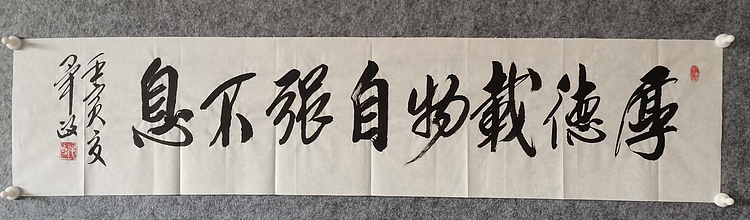 厚德載物自强不息
壬寅